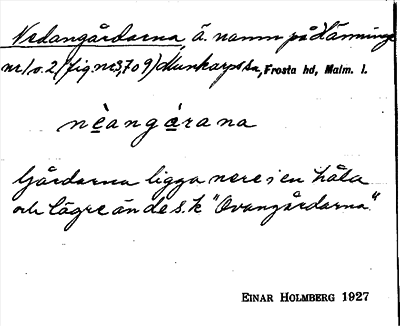 Nedangårdarna, ä. namn på Hänninge
nr 1 o. 2 (fig. nr 3, 7 o 9) Munkarps sn, Frosta hd, Malm. l.
nèangårana
Gårdarna ligga nere i en håla
och lägre än de s.k "Ovangårdarna".
EINAR HOLMBERG 1927